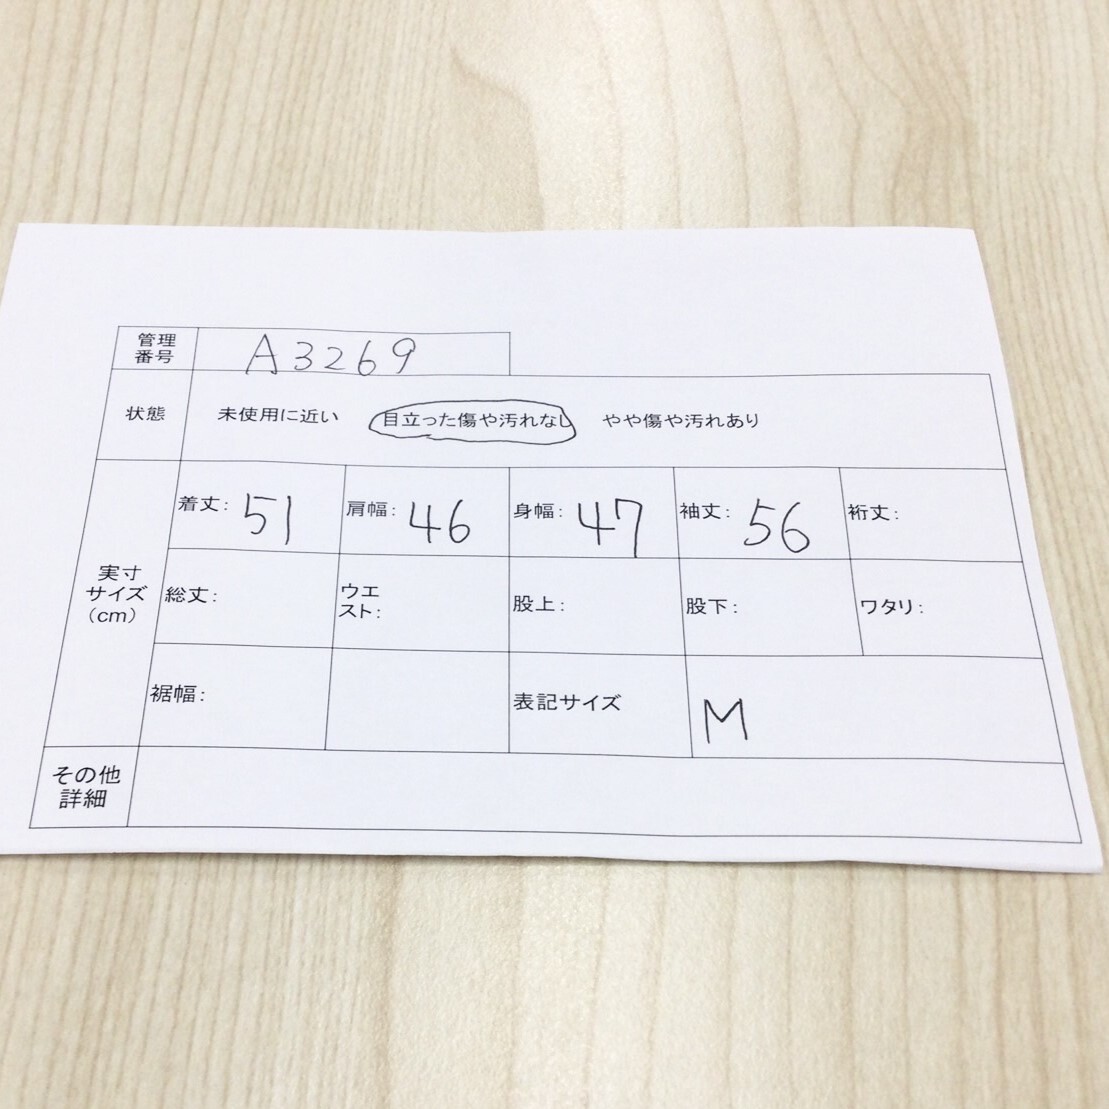 管理
番号
A3269
状態
未使用に近い 目立った傷や汚れなし やや傷や汚れあり
実寸
サイズ
(cm)
着丈: 51 肩幅: 46 身幅: 47 袖丈: 56 裄丈:
総丈: ウエ
スト: 股上: 股下: ワタリ:
裾幅: 表記サイズ M
その他
詳細